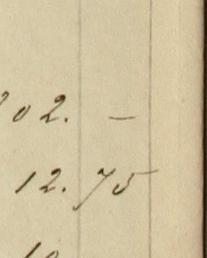 202. —
12. 75